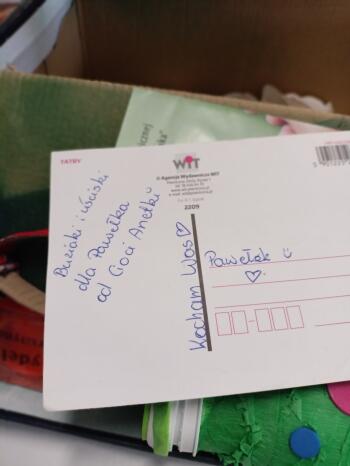 TATRY
WiT
© Agencja Wydawnicza WIT
2209
Buziaki i uściski
dla Pawełka
od Cioci Anetki
Kocham Was ♡
Pawełek
♡
cznej
ska"
ydel